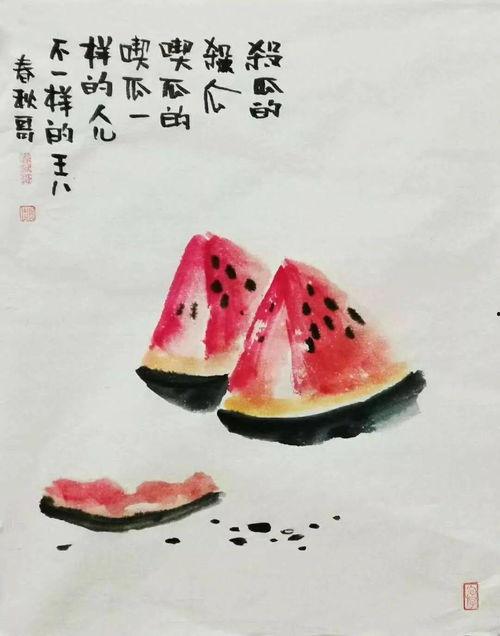 殺瓜的
殺瓜
喫瓜的
喫瓜一
样的人儿
不一样的王八
春秋哥